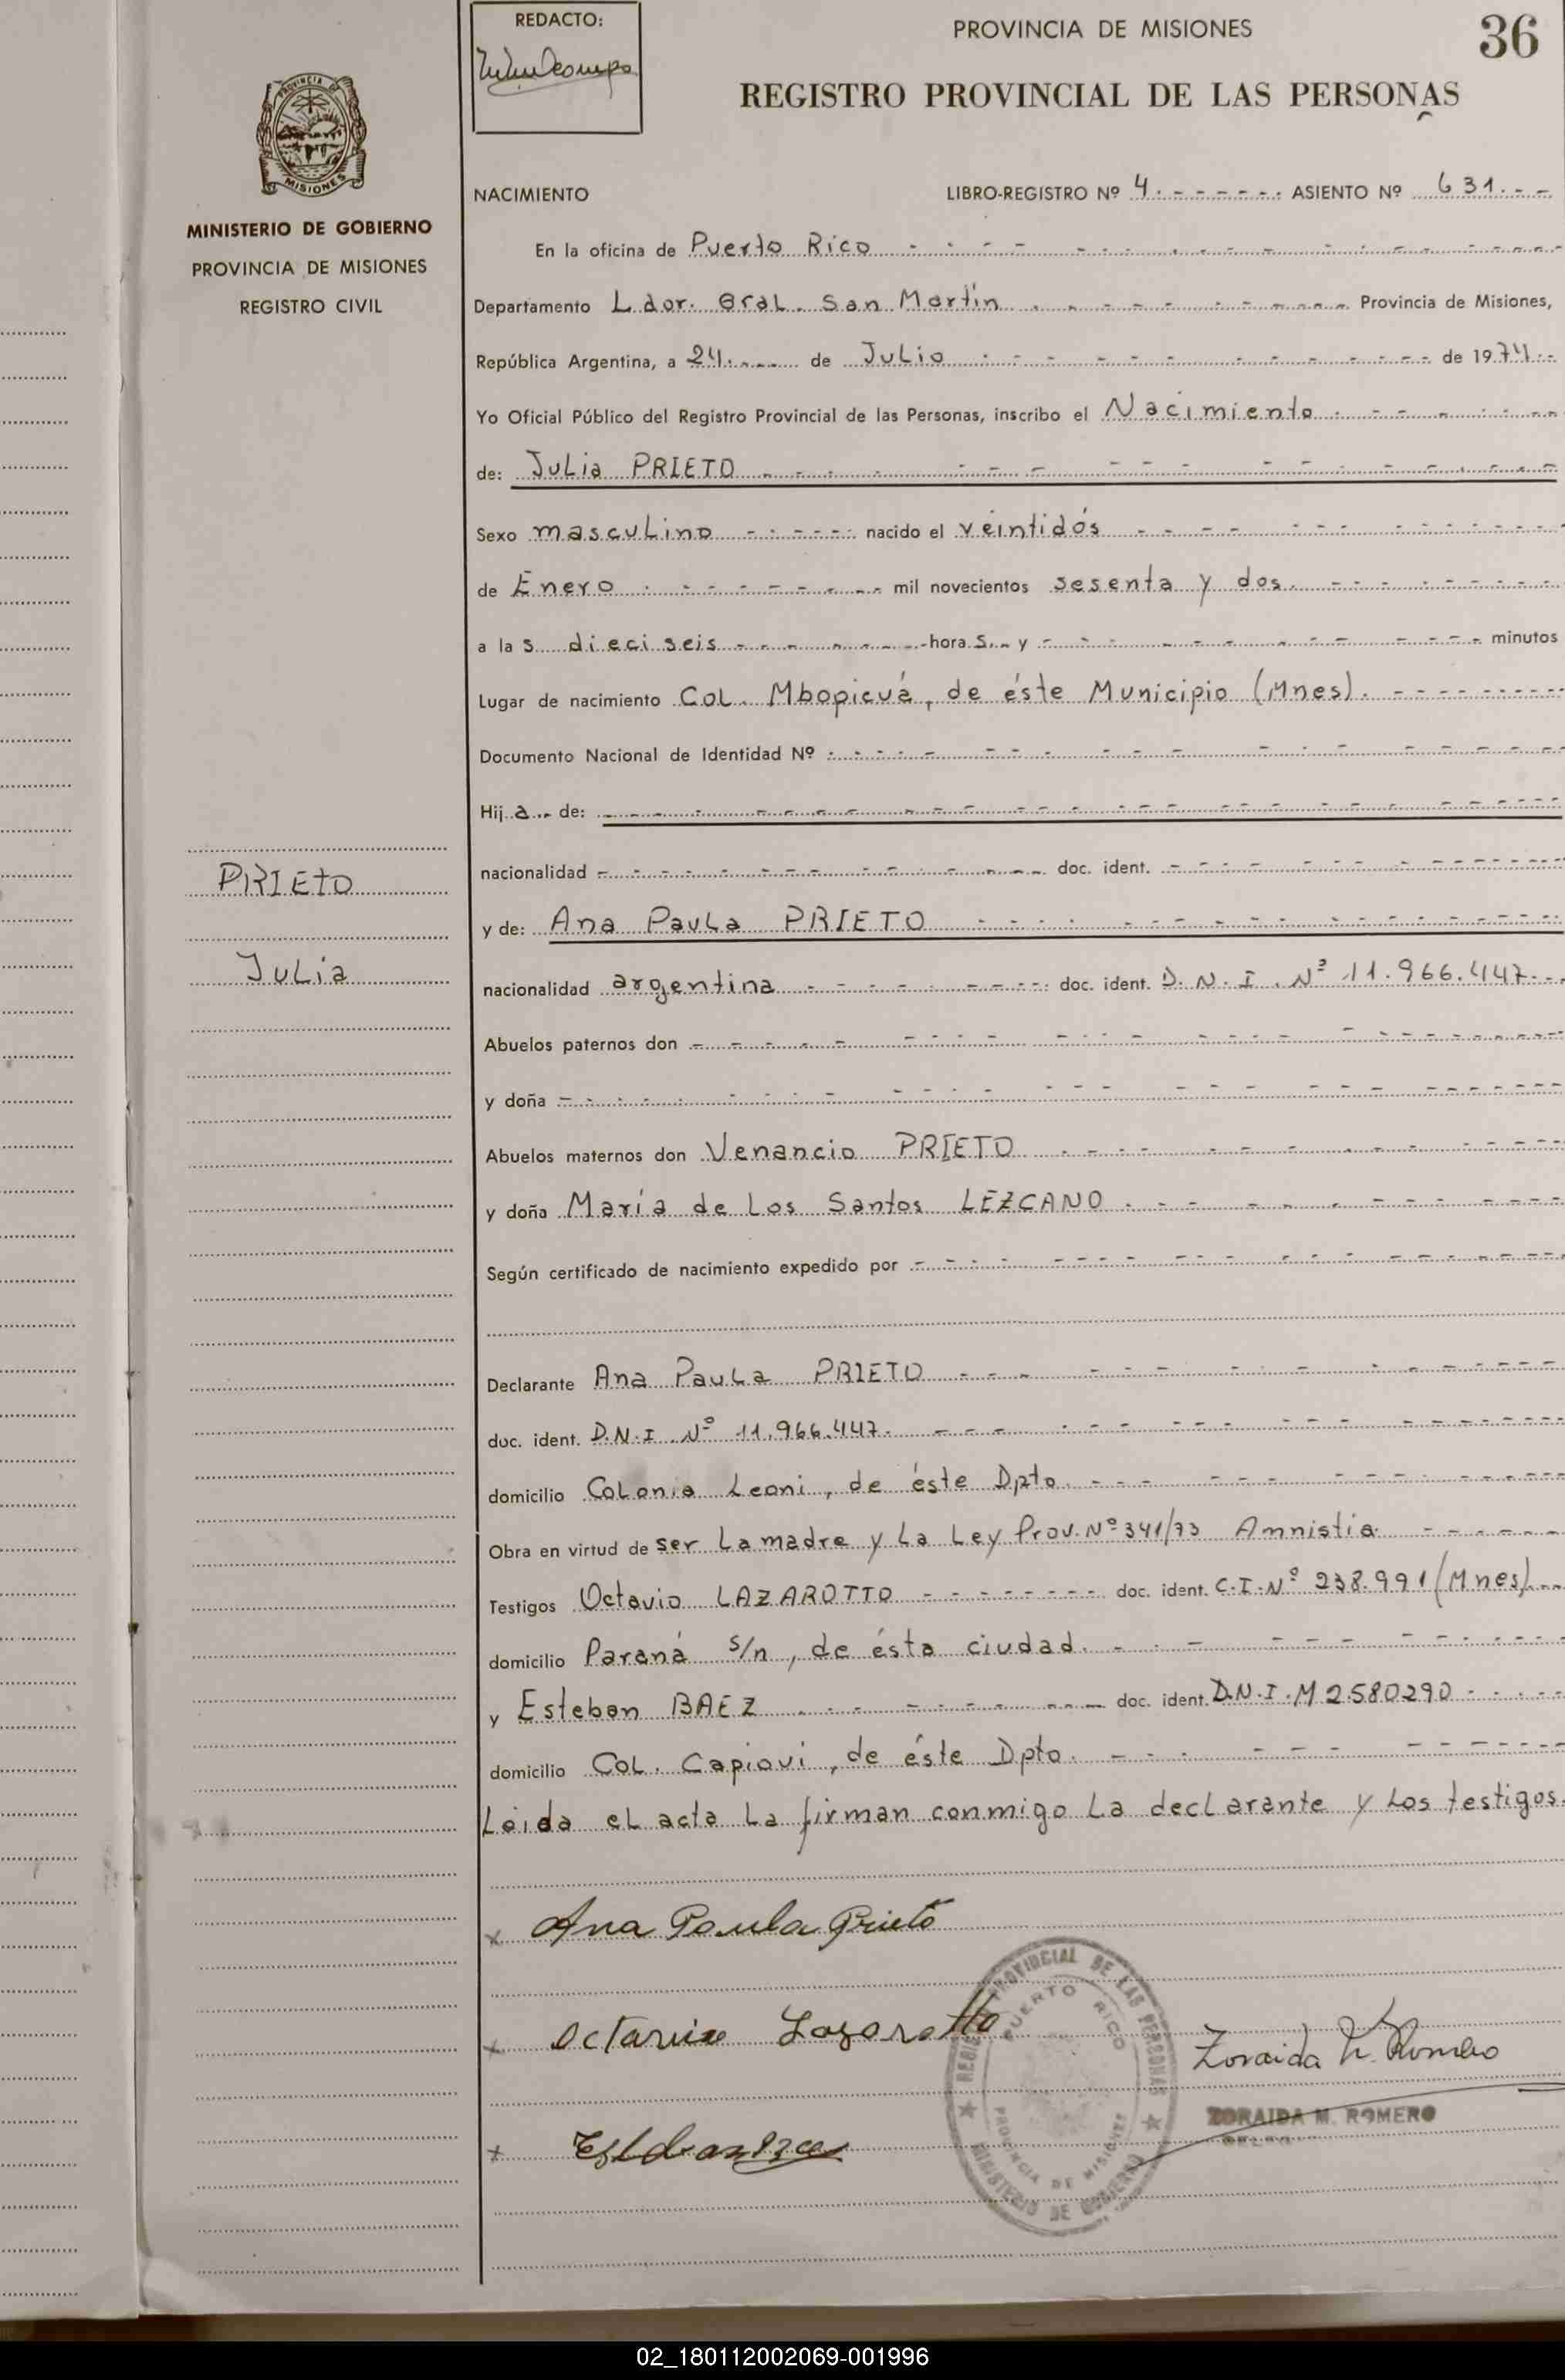 REDACTO:
PROVINCIA DE MISIONES
36
REGISTRO PROVINCIAL DE LAS PERSONAS
PROVINCIA DE
MISIONES
MINISTERIO DE GOBIERNO
PROVINCIA DE MISIONES
REGISTRO CIVIL
NACIMIENTO LIBRO-REGISTRO Nº 4. ASIENTO Nº 631.
En la oficina de Puerto Rico
Departamento Ldor. Gral. San Martín Provincia de Misiones,
República Argentina, a 24. de Julio de 1974
Yo Oficial Público del Registro Provincial de las Personas, inscribo el Nacimiento
de: Julia PRIETO
Sexo masculino nacido el veintidós
de Enero mil novecientos sesenta y dos.
a las dieciseis horas. y minutos
Lugar de nacimiento Col. Mbopicuá, de éste Municipio (Mnes).
Documento Nacional de Identidad Nº
Hija de:
nacionalidad doc. ident.
PRIETO
y de: Ana Paula PRIETO
Julia
nacionalidad argentina doc. ident. D.N.I. Nº 11.966.447.
Abuelos paternos don
y doña
Abuelos maternos don Venancio PRIETO
y doña María de Los Santos LEZCANO
Según certificado de nacimiento expedido por
Declarante Ana Paula PRIETO
doc. ident. D.N.I. Nº 11.966.447.
domicilio Colonia Leoni, de éste Dpto.
Obra en virtud de ser La madre y La Ley Prov. Nº 341/73 Amnistía
Testigos Octavio LAZAROTTO doc. ident. C.I. Nº 238.991 (Mnes)
domicilio Paraná s/n, de ésta ciudad.
y Esteban BAEZ doc. ident. D.N.I. M 2580290
domicilio Col. Capioví, de éste Dpto.
Leída el acta La firman conmigo La declarante y Los testigos.
x Ana Paula Prieto
x Octavio Lazarotto
Zoraida M. Romero
ZORAIDA M. ROMERO
x
REGISTRO PROVINCIAL DE LAS PERSONAS
PUERTO RICO
PROVINCIA DE MISIONES
MINISTERIO DE GOBIERNO
02_180112002069-001996